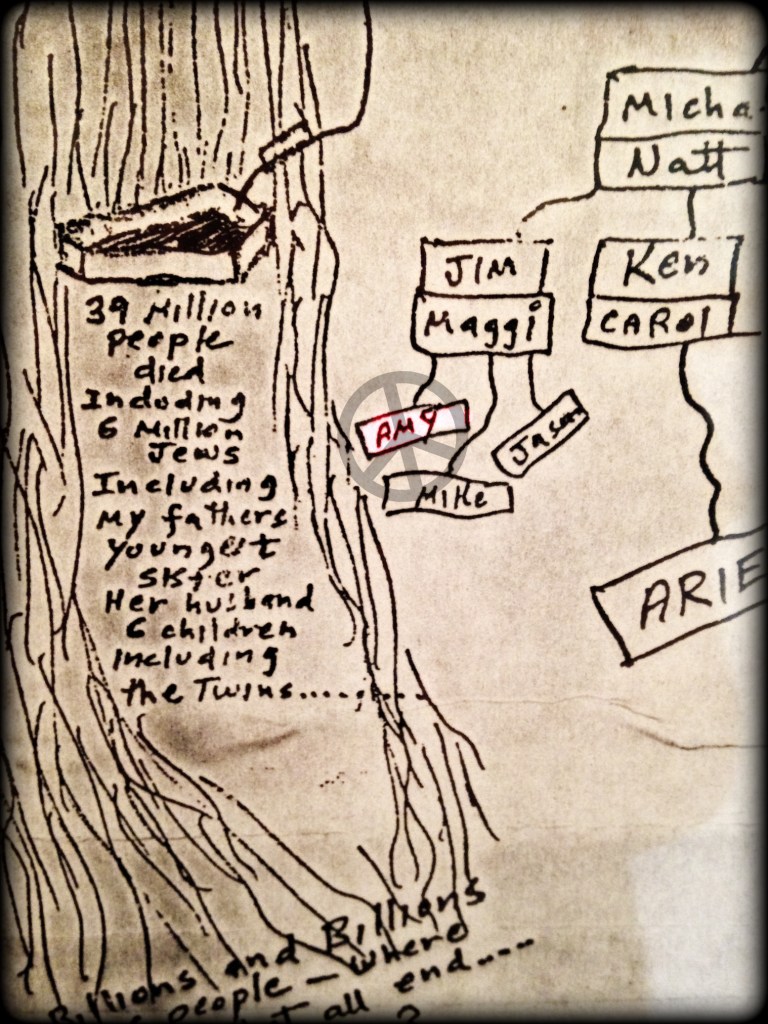 39 Million
people
died
Incloding
6 Million
Jews
Including
My fathers
youngest
sister
Her husband
6 children
including
the Twins............
Billions and Billions
people – where
all end....
?
Micha
Natt
JIM
Maggi
Ken
CAROl
AMY
Jason
MIKe
ARIE